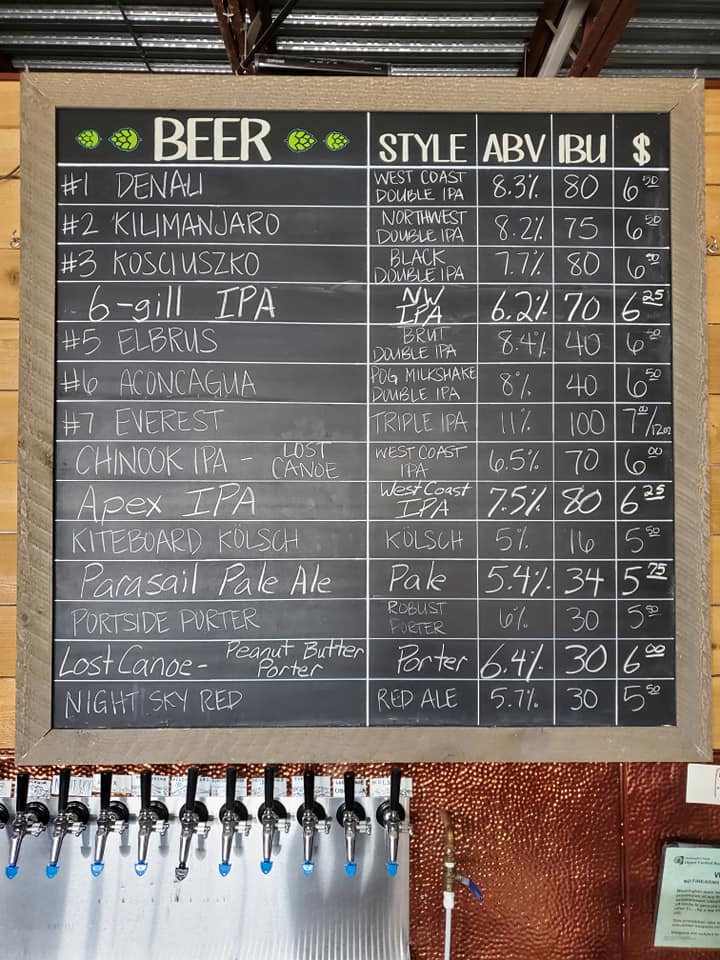 BEER STYLE ABV IBU $
#1 DENALI WEST COAST DOUBLE IPA 8.3% 80 6 50
#2 KILIMANJARO NORTHWEST DOUBLE IPA 8.2% 75 6 50
#3 KOSCIUSZKO BLACK DOUBLE IPA 7.7% 80 6 50
6-gill IPA NW IPA 6.2% 70 6 25
#5 ELBRUS BRUT DOUBLE IPA 8.4% 40 6 50
#6 ACONCAGUA POG MILKSHAKE DOUBLE IPA 8% 40 6 50
#7 EVEREST TRIPLE IPA 11% 100 7 00/12oz
CHINOOK IPA - LOST CANOE WEST COAST IPA 6.5% 70 6 00
Apex IPA West Coast IPA 7.5% 80 6 25
KITEBOARD KÖLSCH KÖLSCH 5% 16 5 50
Parasail Pale Ale Pale 5.4% 34 5 75
PORTSIDE PORTER ROBUST PORTER 6% 30 5 50
Lost Canoe - Peanut Butter Porter Porter 6.4% 30 6 00
NIGHT SKY RED RED ALE 5.7% 30 5 50